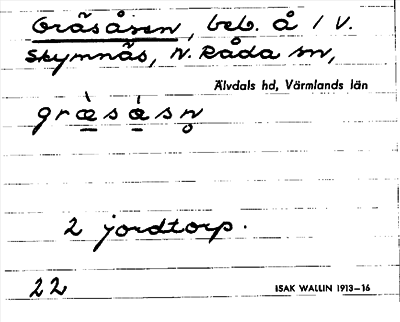 Gräsåsen, beb. å 1 V.
Skymnäs, N. Råda sn,
Älvdals hd, Värmlands län
græ̀sàsn̥
2 jordtorp.
22
ISAK WALLIN 1913–16